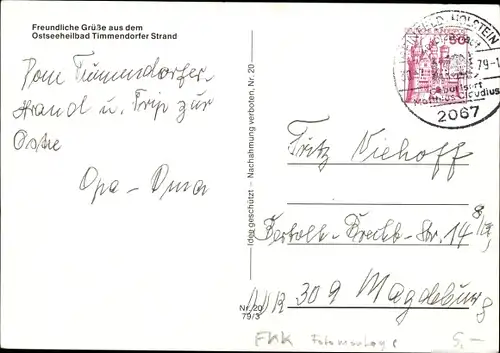 Freundliche Grüße aus dem
Ostseeheilbad Timmendorfer Strand
Vom Timmendorfer-
strand u. Trip zur
Ostse
Opa-Oma
Idee geschützt – Nachahmung verboten, Nr. 20
Nr. 20
79/3
REINFELD HOLSTEIN
50
79-1
Geburtsort
Matthias Claudius
2067
Fritz Niehoff
Bertolt-Brecht-Str. 14
DDR 309 Magdeburg
FKK Fotomontage
5,-